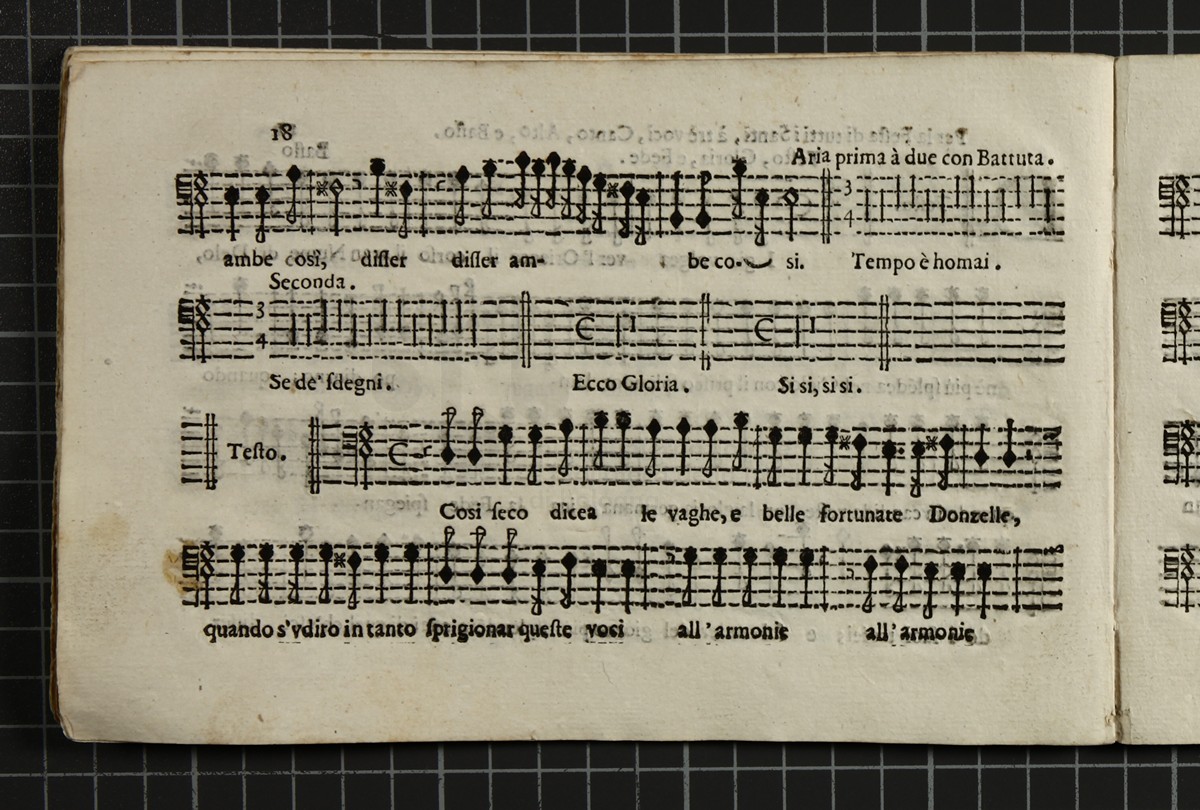 18
Aria prima à due con Battuta.
3
4
ambe così, disser disser am- be co- si. Tempo è homai.
Seconda.
3
4
C 1 C 1
Se de' sdegni. Ecco Gloria. Si si, si si.
Testo. C
Cosi seco dicea le vaghe, e belle fortunate Donzelle,
quando s'vdiro in tanto sprigionar queste voci all'armonie all'armonie